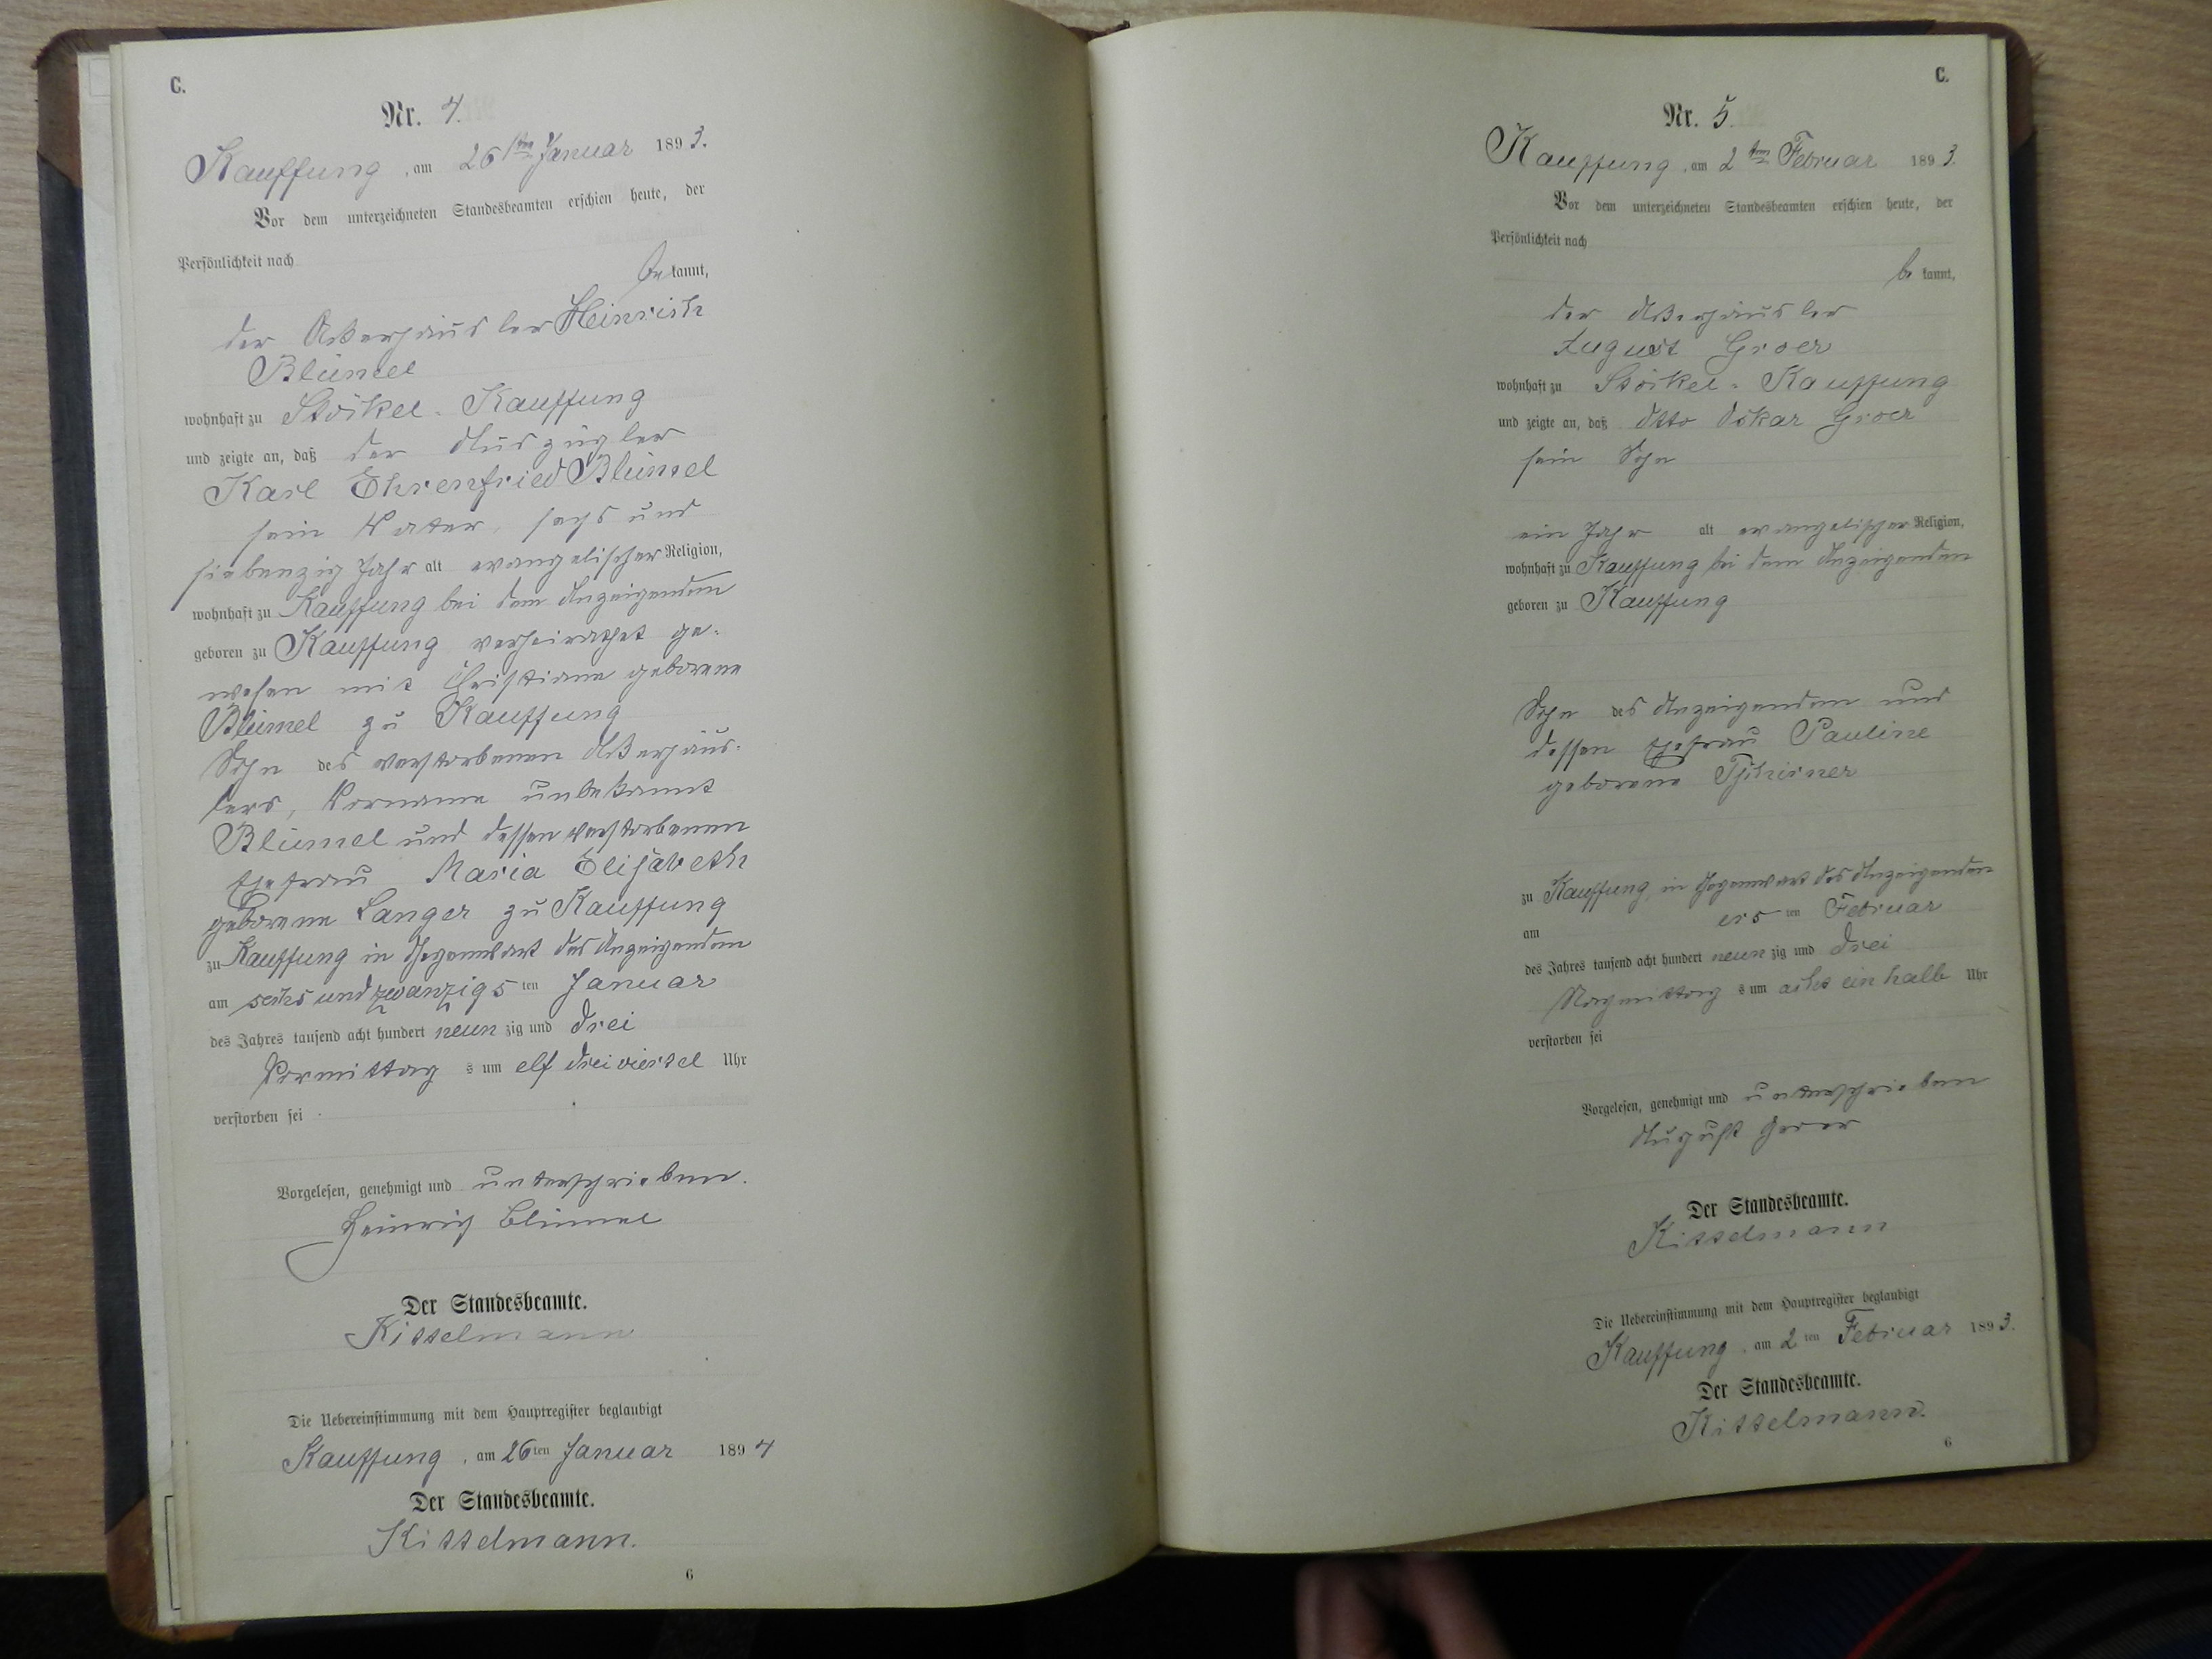 C.
Nr. 4.
Kauffung, am 26ten Januar 1893.
Vor dem unterzeichneten Standesbeamten erschien heute, der
Persönlichkeit nach
bekannt,
der Ackerhäusler Heinrich
Blümel
wohnhaft zu Stöckel-Kauffung
und zeigte an, daß der Auszügler
Karl Ehrenfried Blümel
sein Vater, sechs und
siebenzig Jahr alt evangelischer Religion,
wohnhaft zu Kauffung bei dem Anzeigenden
geboren zu Kauffung verheirathet ge-
wesen mit Christiane geborene
Blümel zu Kauffung
Sohn des verstorbenen Ackerhäus-
lers, Vorname unbekannt
Blümel und dessen verstorbenen
Ehefrau Maria Elisabeth
geborene Langer zu Kauffung
zu Kauffung in Gegenwart des Anzeigenden
am sechs und zwanzigsten Januar
des Jahres tausend acht hundert neunzig und drei
Vormittags um elf dreiviertel Uhr
verstorben sei
Vorgelesen, genehmigt und unterschrieben.
Heinrich Blümel
Der Standesbeamte.
Kisselmann
Die Uebereinstimmung mit dem Hauptregister beglaubigt
Kauffung, am 26ten Januar 1894
Der Standesbeamte.
Kisselmann.
6
C.
Nr. 5.
Kauffung, am 2ten Februar 1893.
Vor dem unterzeichneten Standesbeamten erschien heute, der
Persönlichkeit nach
bekannt,
der Ackerhäusler
August Groer
wohnhaft zu Stöckel-Kauffung
und zeigte an, daß Otto Oskar Groer
sein Sohn
ein Jahr alt evangelischer Religion,
wohnhaft zu Kauffung bei dem Anzeigenden
geboren zu Kauffung
Sohn des Anzeigenden und
dessen Ehefrau Pauline
geborene
zu Kauffung, in Gegenwart des Anzeigenden
am ersten Februar
des Jahres tausend acht hundert neunzig und drei
Nachmittags um acht ein halb Uhr
verstorben sei
Vorgelesen, genehmigt und unterschrieben
August Groer
Der Standesbeamte.
Kisselmann
Die Uebereinstimmung mit dem Hauptregister beglaubigt
Kauffung, am 2ten Februar 1893.
Der Standesbeamte.
Kisselmann.
6